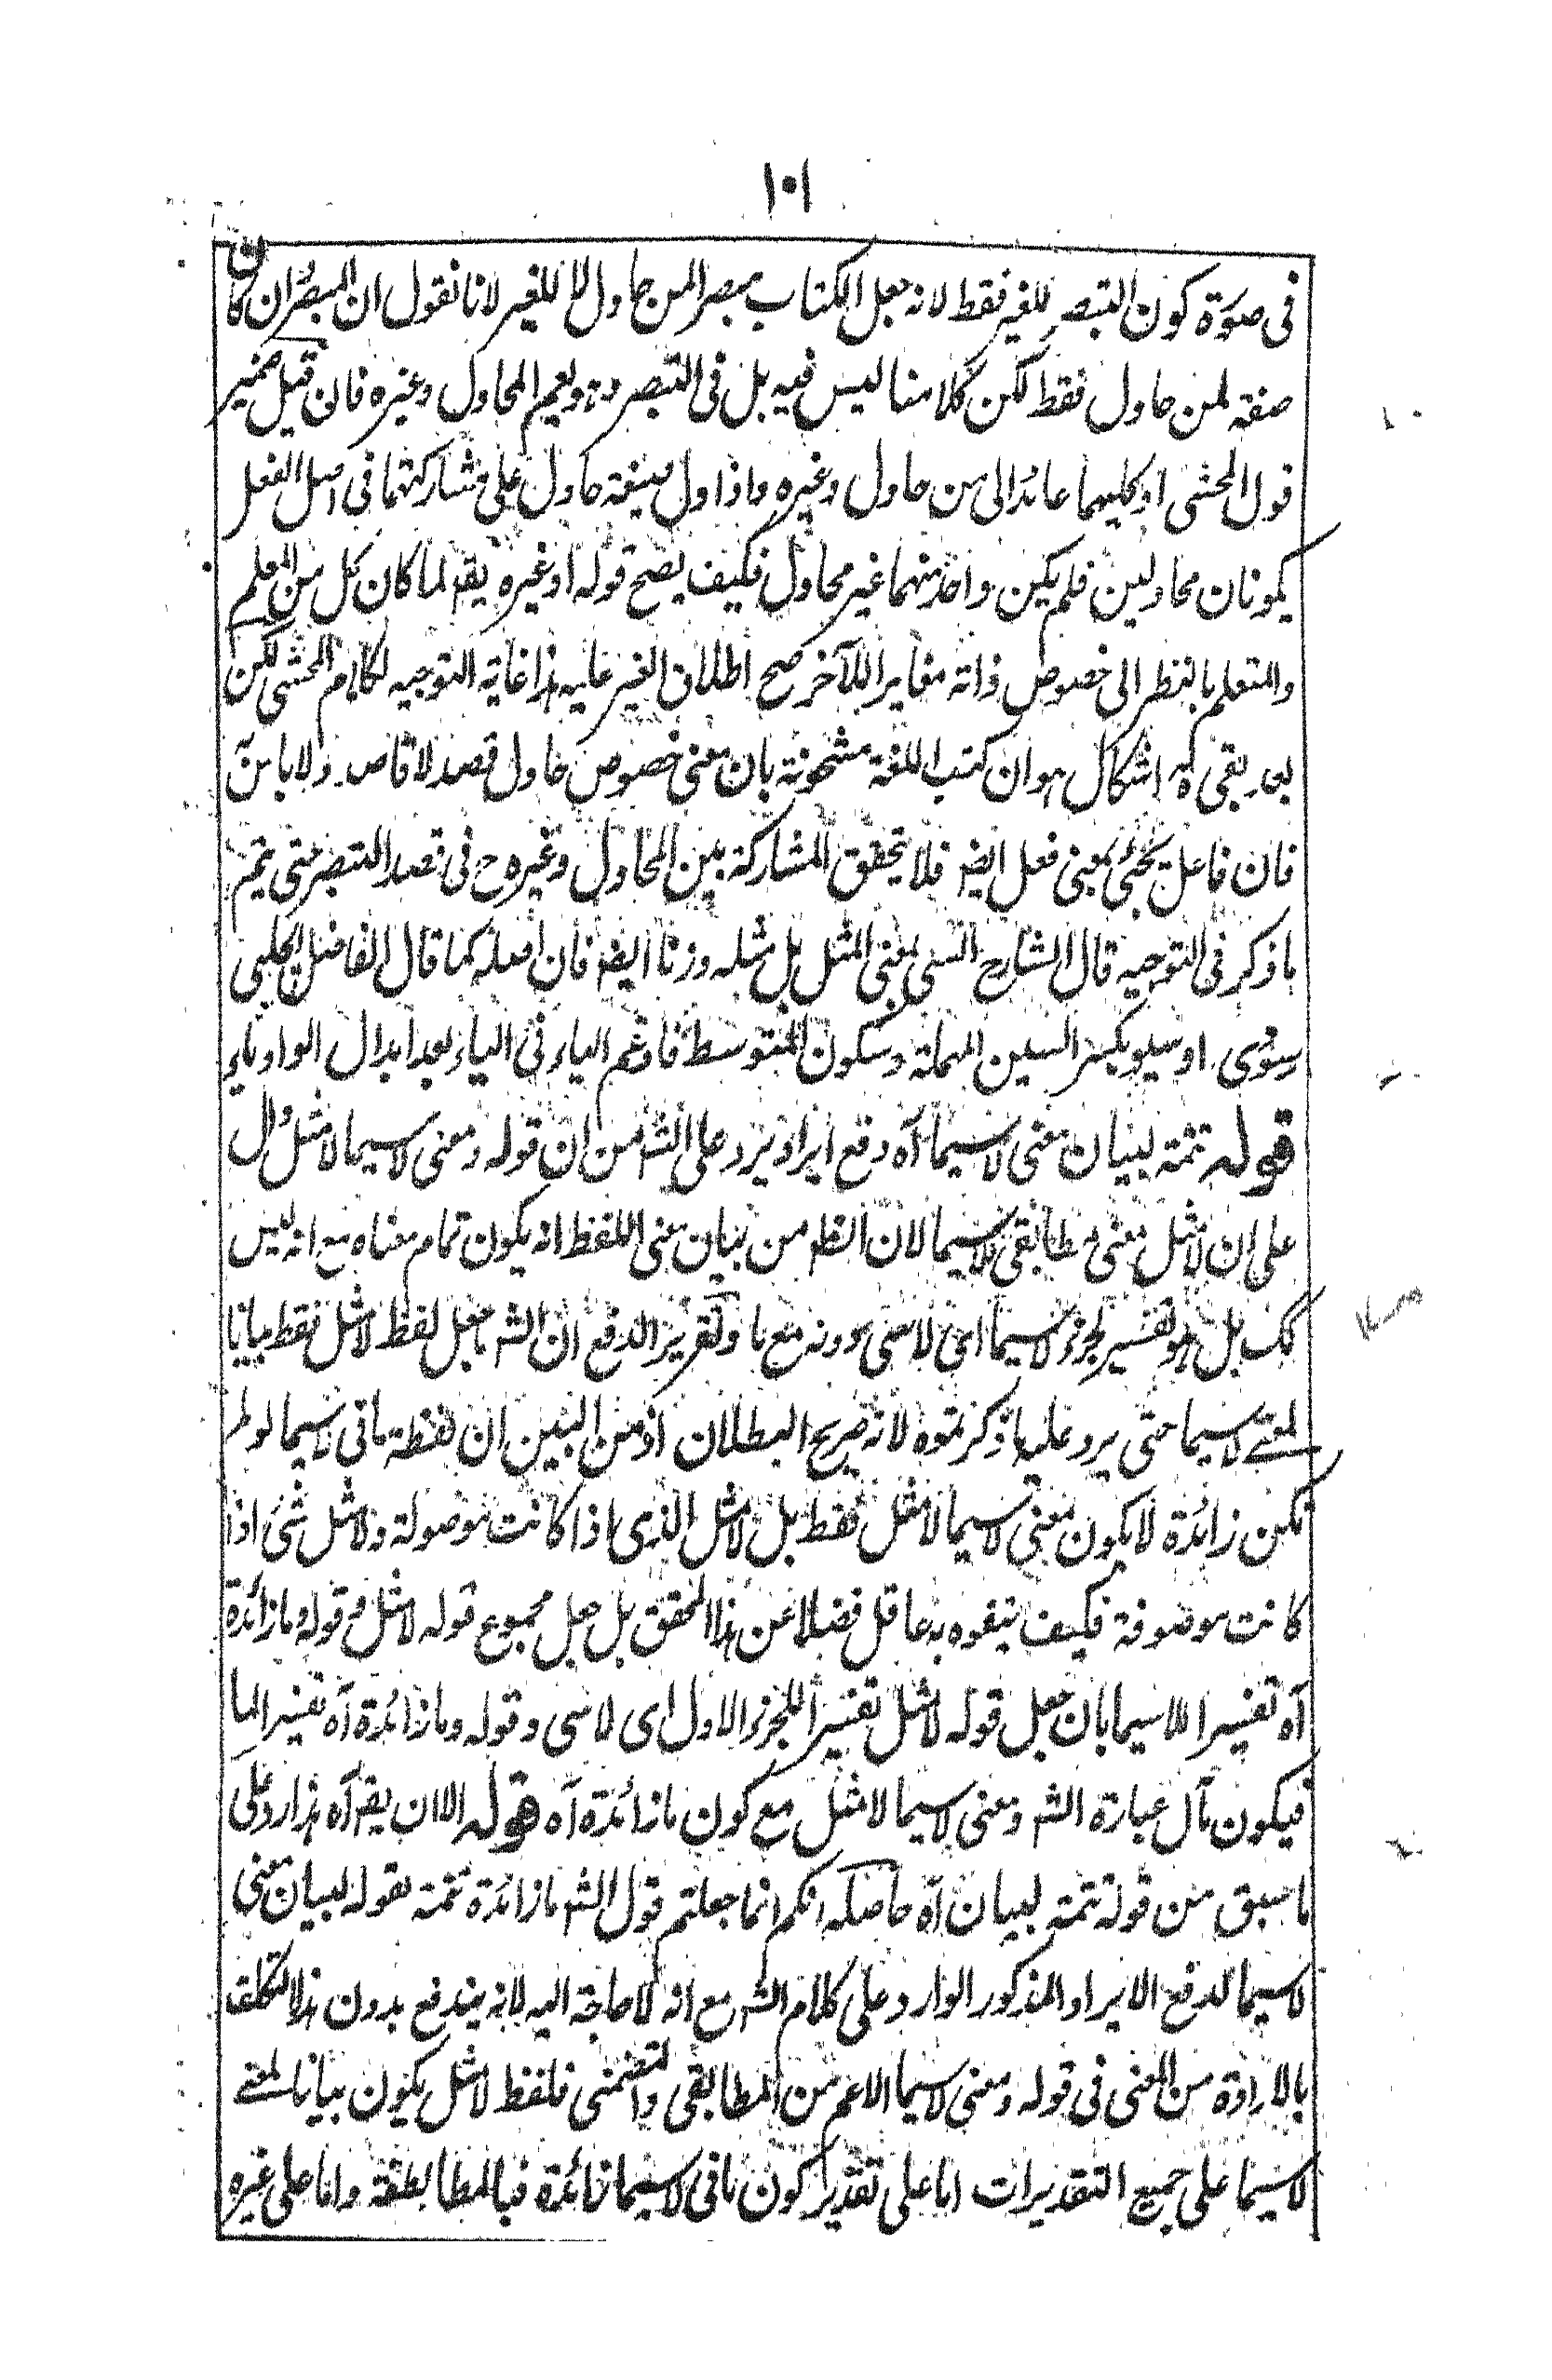 ١٠١
فى صورة كون التبصر للغير فقط لانه جعل الكتاب مبصرا لمن حاول لا للغير لانا نقول ان المبصر ان كان
صفة لمن حاول فقط لكن كلامنا ليس فيه بل فى التبصر وهو يعم المحاول وغيره فان قيل ضمير
قول المحشى او كليهما عائد الى من حاول وغيره واذا اول صيغة حاول على مشاركتهما فى اصل الفعل
يكونان محاولين فلم يكن واحد منهما غير محاول فكيف يصح قوله او غيره يقه لما كان كل من المعلم
والمتعلم بالنظر الى خصوص ذاته مغايرا للآخر صح اطلاق الغير عليه هذا غاية التوجيه لكلام المحشى لكن
بعد بقى كه اشكال هو ان كتب اللغة مشحونة بان معنى خصوص حاول قصد لا قاصد ولا باس به
فان فاعل يجئ بمعنى فعل ايضه فلا تحقق المشاركة بين المحاول وغيره ح فى قصد التبصر حتى يتم
ما ذكر فى التوجيه قال الشارح السى بمعنى المثل بل مثله وزنا ايضه فان اصله كما قال الفاضل الچلپى
سوى او سيو بكسر السين المهملة وسكون المتوسط فادغم الياء فى الياء بعد ابدال الواو ياء
قوله تتمة لبيان معنى لاسيما آه دفع ايراد يرد على الشه من ان قوله ومعنى لاسيما لا مثل دال
على ان لا مثل معنى مطابقى للاسيما لان الظه من بيان معنى اللفظ انه يكون تمام معناه مع انه ليس
كك بل هو تفسير لجزء لاسيما اى لاسى بدونه مع ما وتقرير الدفع ان الشه ما جعل لفظ لا مثل فقط بيانا
لمعنى لاسيما حتى يرد عليه ما ذكرتموه لانه صريح البطلان اذ من البين ان لفظة ما فى لاسيما لو لم
تكن زائدة لا يكون معنى لاسيما لا مثل فقط بل لا مثل الذى اذا كانت موصولة ولا مثل شئ اذا
كانت موصوفة فكيف يتفوه به عاقل فضلا عن هذا المحقق بل جعل مجموع قوله لا مثل وقوله وما زائدة
آه تفسيرا للاسيما بان جعل قوله لا مثل تفسيرا للجزء الاول اى لاسى وقوله وما زائدة آه تفسيرا لما
فيكون مآل عبارة الشه ومعنى لاسيما لا مثل مع كون ما زائدة آه قوله الا ان يقه آه هذا رد على
ما سبق من قوله تتمة لبيان آه حاصله انكم انما جعلتم قول الشه ما زائدة تتمة لقوله لبيان معنى
لاسيما لدفع الايراد المذكور الوارد على كلام الشه مع انه لا حاجة اليه لانه يندفع بدون هذا التكلف
بالارادة من المعنى فى قوله ومعنى لاسيما الاعم من المطابقى والتضمنى فلفظ لا مثل يكون بيانا لمعنى
لاسيما على جميع التقديرات اما على تقدير كون ما فى لاسيما زائدة فبالمطابقة واما على غيره